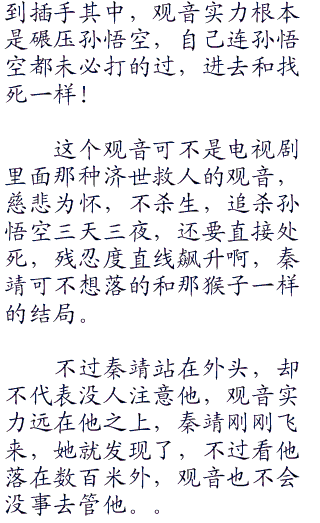 到插手其中，观音实力根本
是碾压孙悟空，自己连孙悟
空都未必打的过，进去和找
死一样！
这个观音可不是电视剧
里面那种济世救人的观音，
慈悲为怀，不杀生，追杀孙
悟空三天三夜，还要直接处
死，残忍度直线飙升啊，秦
靖可不想落的和那猴子一样
的结局。
不过秦靖站在外头，却
不代表没人注意他，观音实
力远在他之上，秦靖刚刚飞
来，她就发现了，不过看他
落在数百米外，观音也不会
没事去管他。。